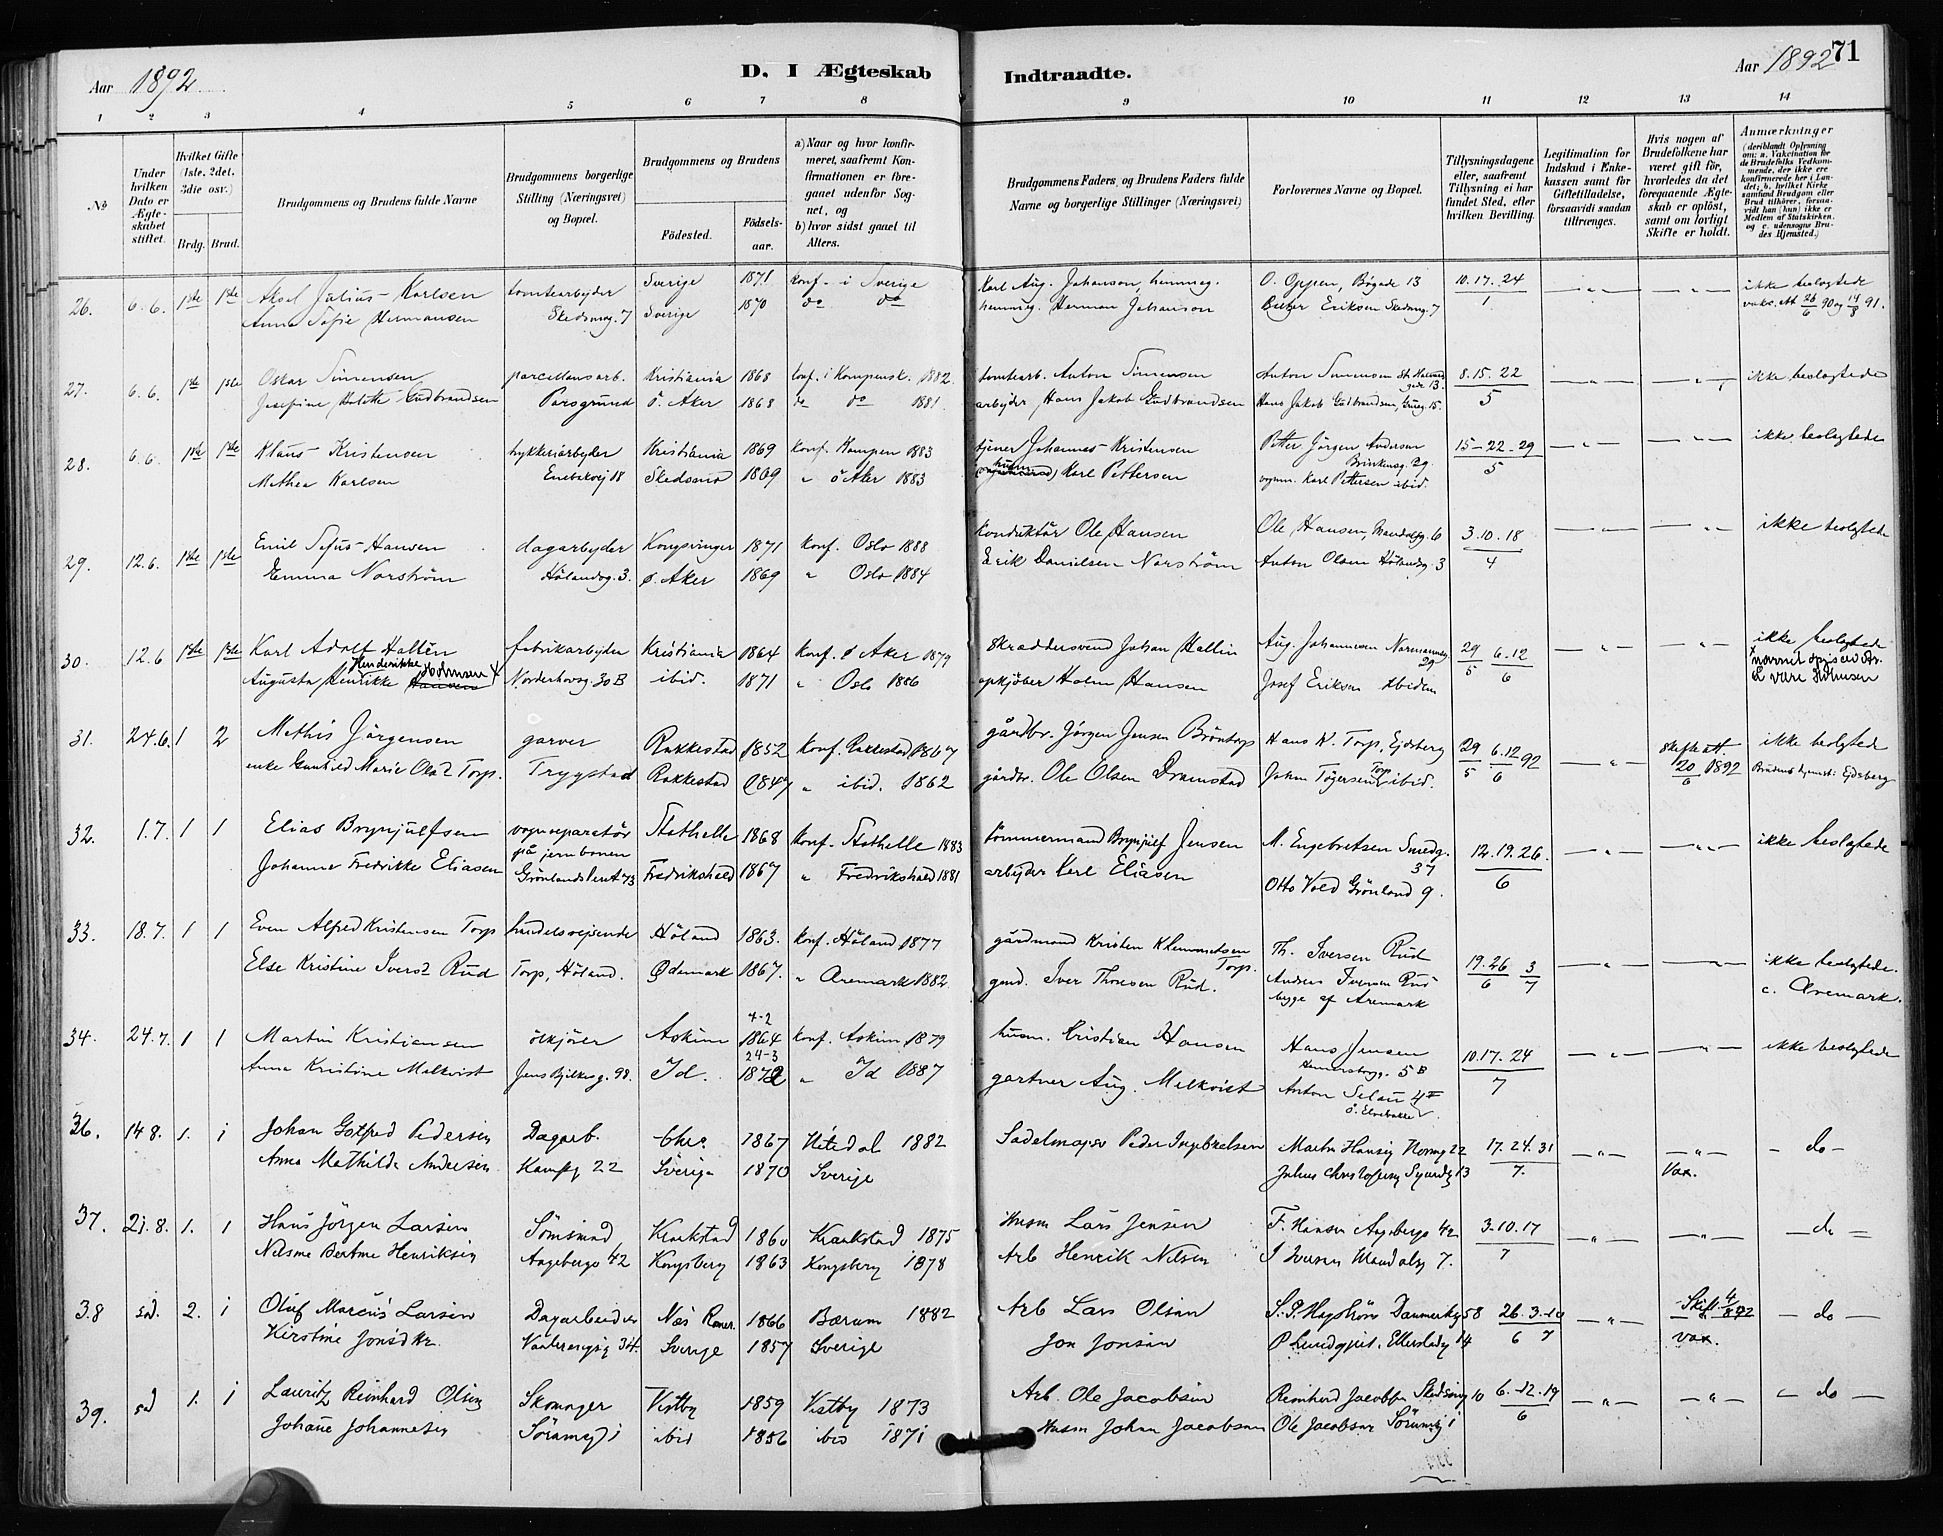 Aar 1892
D. I Ægteskab Indtraadte.
Aar 1892 71
1 2 3 4 5 6 7 8 9 10 11 12 13 14
№
Under hvilken Dato er Ægteskabet stiftet.
Hvilket Gifte (1ste, 2det, 3die osv.)
Brdg. Brud.
Brudgommens og Brudens fulde Navne
Brudgommens borgerlige Stilling (Næringsvei) og Bopæl.
Brudgommens og Brudens
Fødested. Fødselsaar.
a) Naar og hvor konfirmeret, saafremt Konfirmationen er foregaaet udenfor Sognet, og
b) hvor sidst gaaet til Alters.
Brudgommens Faders og Brudens Faders fulde Navne og borgerlige Stillinger (Næringsvei)
Forlovernes Navne og Bopæl.
Tillysningsdagene eller, saafremt Tillysning ei har fundet Sted, efter hvilken Bevilling.
Legitimation for Indskud i Enkekassen samt for Giftetilladelse, forsaavidt saadan tiltrænges.
Hvis nogen af Brudefolkene har været gift før, hvorledes da det foregaaende Ægteskab er opløst, samt om lovligt Skifte er holdt.
Anmærkninger (deriblandt Oplysning om: a. Vakcination for de Brudefolks Vedkommende, der ikke ere konfirmerede her i Landet; b. hvilket Kirkesamfund Brudgom eller Brud tilhører, forsaavidt han (hun) ikke er Medlem af Statskirken, og c. udensogns Brudes Hjemsted.)
26. 6.6. 1ste 1ste Aksel Julius Karlsen tomtearbyder Sverige 1871 konf. i Sverige Karl Aug. Johanson, hemmg. O. Oppen, Bögade 13 10.17.24 / 1 — " — — " — ikke beslægtede
Anna Sofie Hermansen Skedsmog. 7 Sverige 1870 do do hemmg. Herman Johanson Eriksen Skedsmog. 7 vaks. att 26/6 90 og 14/8 91.
27. 6.6. 1ste 1ste Oskar Simensen Kristiania 1868 konf. i Kampensk. 1882. tomtearb. Anton Simensen Anton Simensen 13. 8.15.22 / 5 — " — — " — ikke beslægtede
Josefine Gudbrandsen Porsgrund Ö. Aker 1868 do do 1881. arbyder Hans Jakob Gudbrandsen Hans Jakob Gudbrandsen, 15.
28. 6.6. 1ste 1ste Klaus Kristensen trykkeriarbyder Kristiania 1869 konf. Kampen 1883 tjener Johannes Kristensen Petter Jörgen Andersen Brinkensg. 29. 15-22-29 / 5 — " — — " — ikke beslægtede
Mathea Karlsen Enebakvej 18 Skedsmo 1869 " ö Aker 1883 husm. Karl Pettersen vognm. Karl Pettersen ibid.
29. 12.6. 1ste 1ste Emil Sofus Hansen dagarbyder Kongsvinger 1871 konf. Oslo 1888 konduktör Ole Hansen Ole Hansen, Mandalsg. 6 3.10.18 / 4 — " — — " — ikke beslægtede
Emma Norström Hölandsg. 3. Ö. Aker 1869 " Oslo 1884 Erik Danielsen Norström Anton Olsen Hölandsg. 3
30. 12.6 1ste 1ste Karl Adolf Hallén fabrikarbyder Kristiania 1864 konf. Ö Aker 1879 skræddersvend Johan Hallin Aug. Johannesen Normannsg. 29 29/5 6.12/6 — " — ikke beslægtede
Augusta Henrikke Henderikke Hansen Holmsen X Norderhovsg. 30 B ibid. 1871 " Oslo 1886 opkjöber Holm Hansen Josef Eriksen ibidem X navnet opgives at være Holmsen
31. 24.6. 1 2 Mathis Jörgensen garver Rakkestad 1852 konf. Rakkestad 1867 gårdbr. Jörgen Jensen Bröntorp Hans K. Torp, Ejdsberg 29/5 6.12/6 92 — " — skifteatt. 20/6 1892 ikke beslægtede
enke Gunhild Marie Olsd. Torp. Trygstad Rakkestad 1847 " ibid. 1862 gårdbr. Ole Olsen Dramstad Johan Tögersen Torp ibid. Brudens hjemst: Ejdsberg
32. 1.7. 1 1 Elias Brynjulfsen vognreparatör på jernbanen Stathelle 1868 konf. Stathelle 1883 tömmermand Brynjulf Jensen M. Engebretsen Smedg. 37 12.19.26. / 6 — " — — " — ikke beslægtede
Johanne Fredrikke Eliasen Grönlandsleret 73 Fredrikshald 1867 " Fredrikshald 1881 arbyder Karl Eliasen Otto Vold Grönland 9.
33. 18.7. 1 1 Even Alfred Kristensen Torp handelsrejsende Höland 1863. konf. Höland 1877 gårdmand Kristen Klemmetsen Torp. Th. Iversen Rud 19.26/6 3/7 — " — — " — ikke beslægtede.
Else Kristine Iversd. Rud Torp, Höland. Ødemark 1867. " Aremark 1882. gmd. Iver Thoresen Rud. Andreas Iversen Rud begge af Aremark c. Aremark.
34. 24.7. 1 1 Martin Kristiansen ölkjörer Askim 4-2 1864 konf. Askim 1879 husm. Kristian Hansen Hans Jensen 5 B 10.17.24 / 7 — " — — " — ikke beslægtede
Anna Kristine Melkvist Jens Bjelkesg. 98. Id. 24-3 1872 " Id 1887 gartner Aug. Melkvist Anton
36. 14 8. 1. 1 Johan Gotfred Pedersen Dagarb. Chra. 1867 Hitedal 1882 Sadelmager Peder Ingebretsen Martin Hansen 22 17.24.31 / 7. — " — — " — - do -
Anna Mathilde Andersen Kampg 22 Sverige 1870 Sverige Julius Christofersen 13 Vax.
37. 21.8. 1. 1 Hans Jörgen Larsen Sömand Kraakstad 1860 Kraakstad 1875 Husm Lars Jensen F. Hansen Aagebergs 42 3.10.17 / 7 — " — — " — - do -
Nelsine Bertine Henriksen Aagebergv 42 Kongsberg 1863 Kongsberg 1878 Arb Henrik Nilsen I Iversen Mandalsg 7.
38 sd. 2. 1 Oluf Marcus Larsen Dagarbeider Næs Romer. 1866 Bærum 1882 Arb Lars Olsen S. P. Hagström Danmarksg 58 26.3.10 / 6 7 — " — Skift. 4/8 92 - do -
Kirstine Jonsd. Vaalerengsg 34. Sverige 1857 Sverige Jon Jonsen P Lundqvist. 14 vax.
39. sd 1. 1 Lauritz Reinhard Olsen Skomager Vestby 1859 Vestby 1873 Arb. Ole Jacobsen Reinhard Jacobsen Skedsmog 10 6.12.19 / 6 — " — — " — - do -
Johanne Johannesen Söramg 1 ibid 1856 ibid 1871 Husm Johan Jacobsen Ole Jacobsen Sörumsg 1